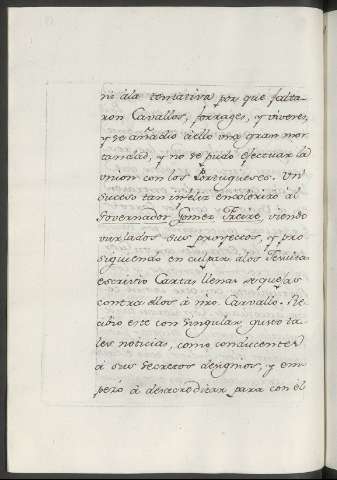 ni ála tentativa por que falta-
ron Cavallos, forrages, y viveres,
y se añadio áello una gran mor-
tandad, y no se pudo efectuar la
union con los Portugueses. Un
suceso tan infeliz encolerizó al
Governador Gomez Freire, viendo
burlados sus proyectos, y pro
siguiendo en culpar álos Jesuitas
escrivio Cartas llenas de quejas
contra ellos á nro. Carvallo. Re
civio este con singular gusto ta-
les noticias, como conducentes
á sus secretos designios, y em
pezó á desacreditar para con el